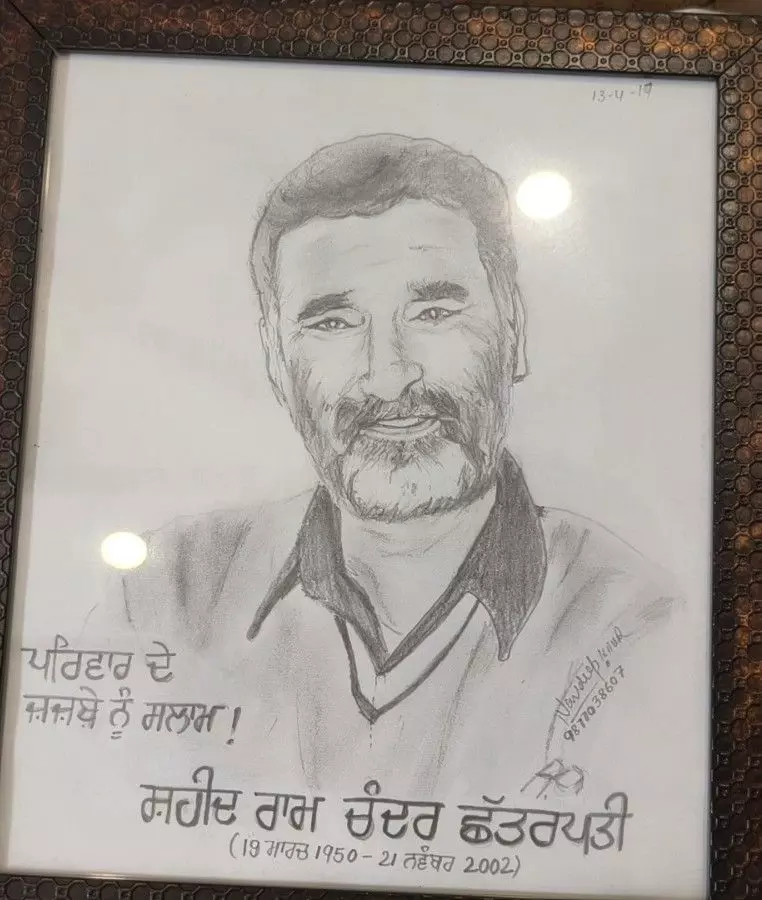 13-4-19
ਪਰਿਵਾਰ ਦੇ
ਜਜ਼ਬੇ ਨੂੰ ਸਲਾਮ!
Navdeep KAUR
9877038607
ਸ਼ਹੀਦ ਰਾਮ ਚੰਦਰ ਛੱਤਰਪਤੀ
(19 ਮਾਰਚ 1950 - 21 ਨਵੰਬਰ 2002)